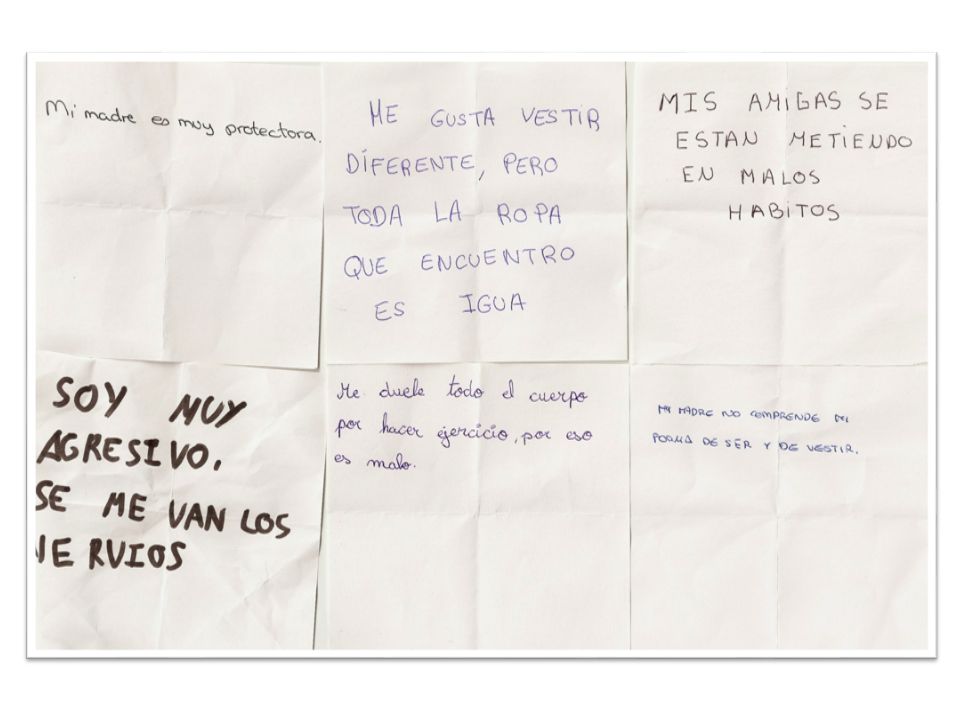 Mi madre es muy protectora.
ME GUSTA VESTIR
DIFERENTE, PERO
TODA LA ROPA
QUE ENCUENTRO
ES IGUA
MIS AMIGAS SE
ESTAN METIENDO
EN MALOS
HABITOS
SOY MUY
AGRESIVO.
SE ME VAN LOS
NERVIOS
Me duele todo el cuerpo
por hacer ejercicio, por eso
es malo.
MI MADRE NO COMPRENDE MI
FORMA DE SER Y DE VESTIR.